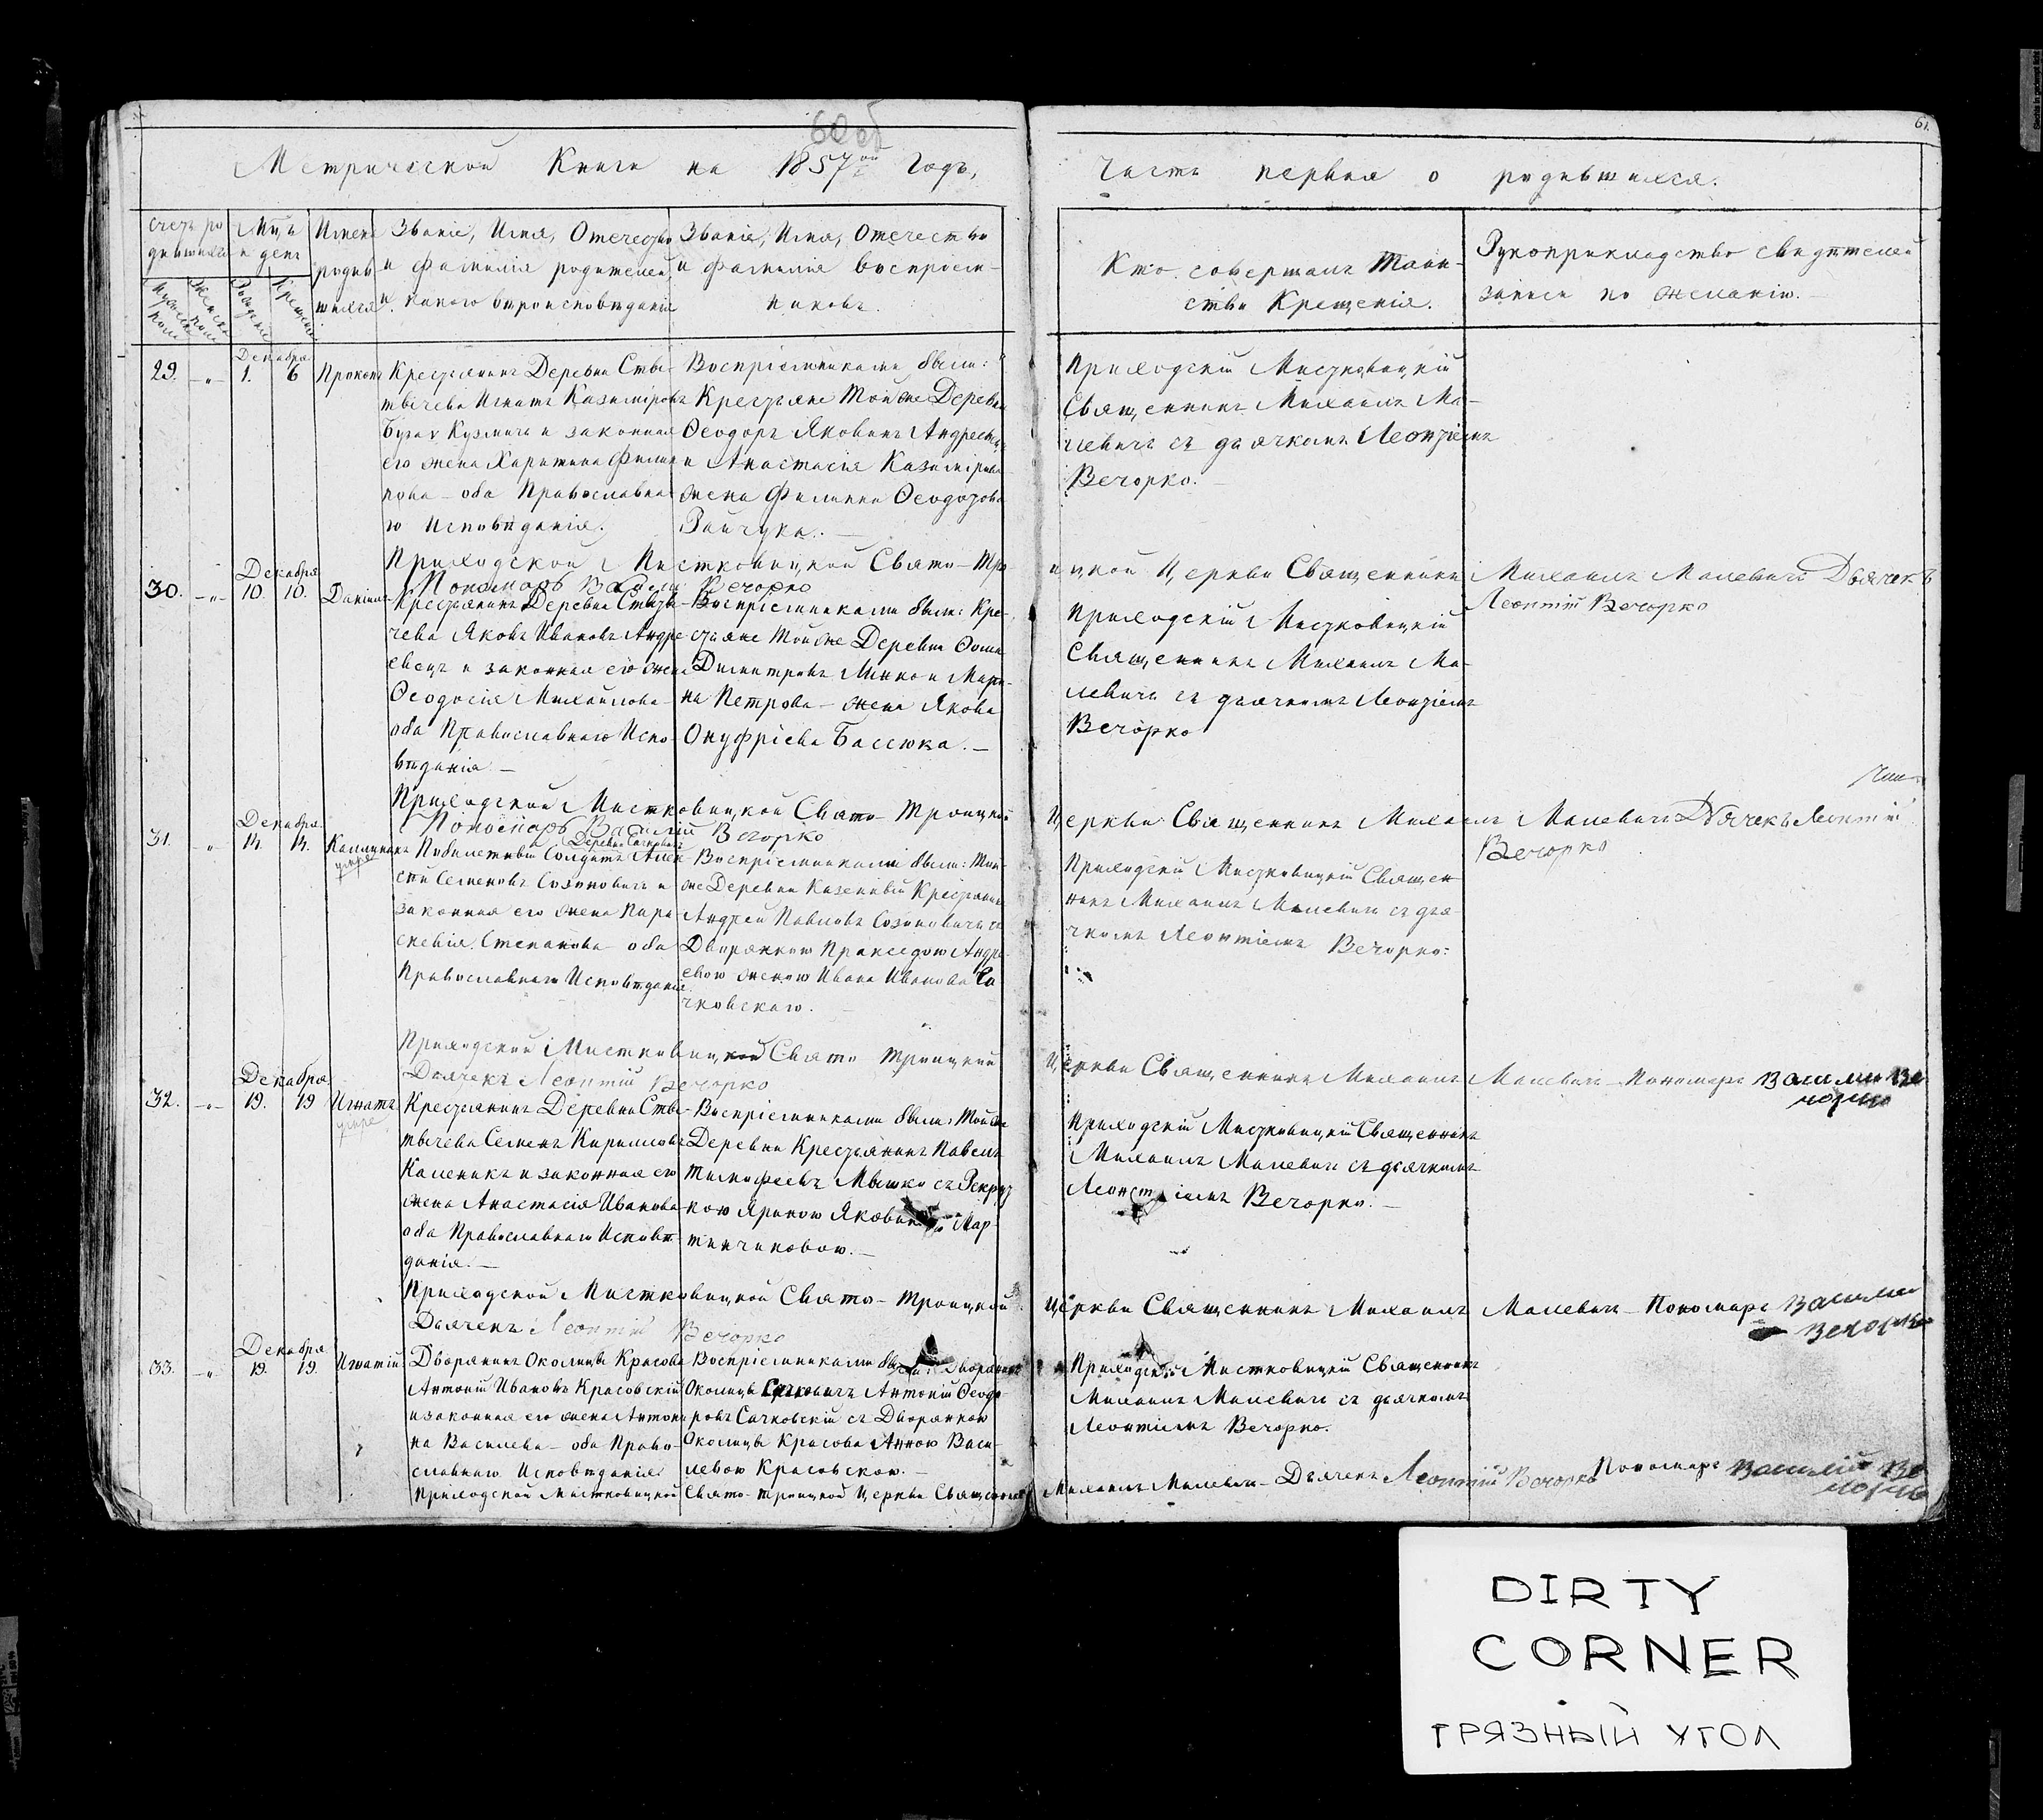 60 об
61.
Метрической Книги на 1857ой Годъ,
Часть первая о родившихся.
Счетъ ро
дившихся
Мужеска
пола
Женска
пола
Мцъ
и день
Рожденія
Крещенія
Имена
родив
шихся.
Званіе, Имя, Отечество
и Фамилія родителей
и какого вѣроисповѣданія
Званіе, Имя, Отечество
и Фамилія воспріем-
никовъ.
Кто совершалъ Таин-
ство Крещенія.
Рукоприкладство свидѣтелей
записи по желанію.
Декабря
29. - „ - 1. 6 Прокопъ
Крестьянинъ Деревни Ство
Игнатъ Казиміровъ
и законная
его жена Харитина Филип
пова - оба Православна
го Исповѣданія.
Воспріемниками были:
Крестьяне Той же Деревни
Ѳеодоръ Яковинъ
и Анастасія Казимірова
жена Филиппа Ѳеодорова
Зайчука. -
Приходскій Мистковицкій
Священникъ Михаилъ Ма-
левичъ съ дьячкомъ Леонтіемъ
Вечорко. -
Приходской Мистковицкой Свято-Тро
ицкой Церкви Священникъ Михаилъ Малевичъ Дьячекъ
Леонтій Вечорко
Пономарь Василій Вечорко
Декабря
30. - „ - 10. 10. Даніилъ
Крестьянинъ Деревни
чева Яковъ Ивановъ Андре
евецъ и законная его жена
Ѳеодосія Михайлова
оба Православнаго Испо-
вѣданія. -
Воспріемниками были: Кре-
стьяне Той же Деревни Ѳома
Димитровъ Минко и Мари-
на Петрова - жена Якова
Онуфріева Басюка. -
Приходскій Мистковицкій
Священникъ Михаилъ Ма-
левичъ съ дьячкомъ Леонтіемъ
Вечорко
Приходской Мистковицкой Свято-Троицкой
Церкви Священникъ Михаилъ Малевичъ Дьячекъ Леонтій
Вечорко
Пономарь Василій Вечорко
Декабря
31. „ 14. 14. Каллиникъ
умре
Солдатъ Алек
сѣй Семеновъ Созоновичъ и
законная его жена Пара
скевія Степанова - оба
Православнаго Исповѣданія.
Воспріемниками были: Той
же Деревни Казенный Крестьянинъ
Андрей Павловъ Созоновичъ съ
Дворянкою Пракседою Андре
евою женою Ивана Иванова Са
чковскаго.
Приходскій Мистковицкій Священ
никъ Михаилъ Малевичъ съ дья-
чкомъ Леонтіемъ Вечорко.
Приходской Мистковицкой Свято Троицкой
Церкви Священникъ Михаилъ Малевичъ - Пономарь Василий Ве
чорко
Дьячекъ Леонтій Вечорко
Декабря
32. - „ - 19. 19 Игнатъ
умре
Крестьянинъ Деревни Ство
тычева Семенъ Кирилловъ
Каленикъ и законная его
жена Анастасія Иванова
оба Православнаго Исповѣ
данія. -
Воспріемниками были: Той же
Деревни Крестьянинъ Павелъ
Тимофеевъ Мышко съ Рекрут
кою Ариною
тинчиковою. -
Приходскій Мистковицкій Священникъ
Михаилъ Малевичъ съ дьячкомъ
Леонтіемъ Вечорко. -
Приходской Мистковицкой Свято-Троицкой
Церкви Священникъ Михаилъ Малевичъ - Пономарь Василий
Вечорко
Дьячекъ Леонтій Вечорко
Декабря
33. - „ 19. 19. Игнатій
Дворянинъ Околицы Красова
Антоній Ивановъ Красовскій
и законная его жена Антони
на Василева - оба Право-
славнаго Исповѣданія
Воспріемниками были: Дворянинъ
Околицы Антоній Ѳеодо-
ровъ Сачковскій съ Дворянкою
Околицы Красова Анною Васи-
левою Красовскою. -
Приходскій Мистковицкій Священникъ
Михаилъ Малевичъ съ дьячкомъ
Леонтіемъ Вечорко.
Приходской Мистковицкой Свято-Троицкой Церкви Священникъ
Михаилъ Малевичъ - Дьячекъ Леонтій Вечорко Пономарь Василий Ве
чорко
DIRTY
CORNER
ГРЯЗНЫЙ УГОЛ